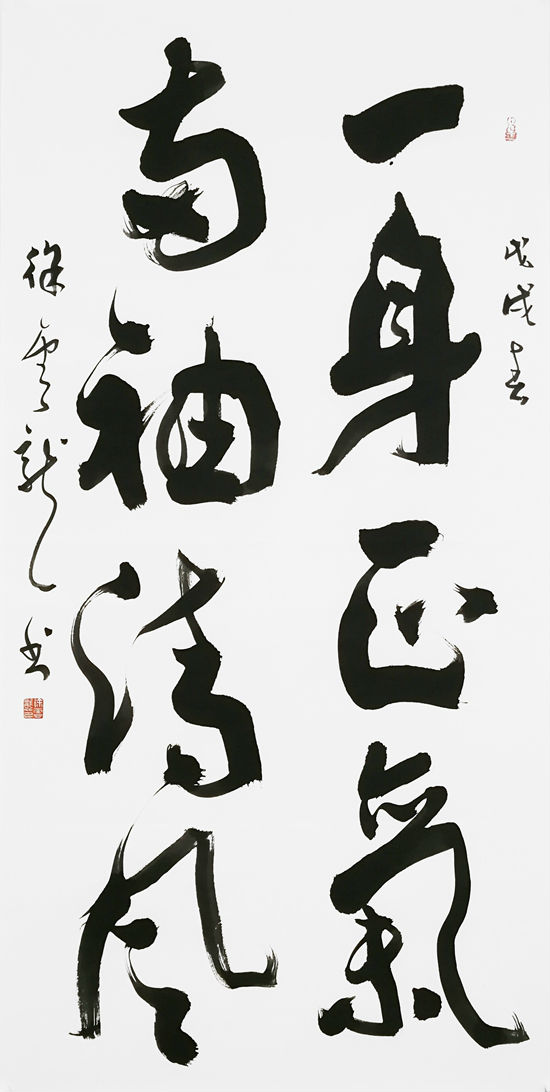 戊戌春
一身正氣
兩袖清风
徐雲龍书